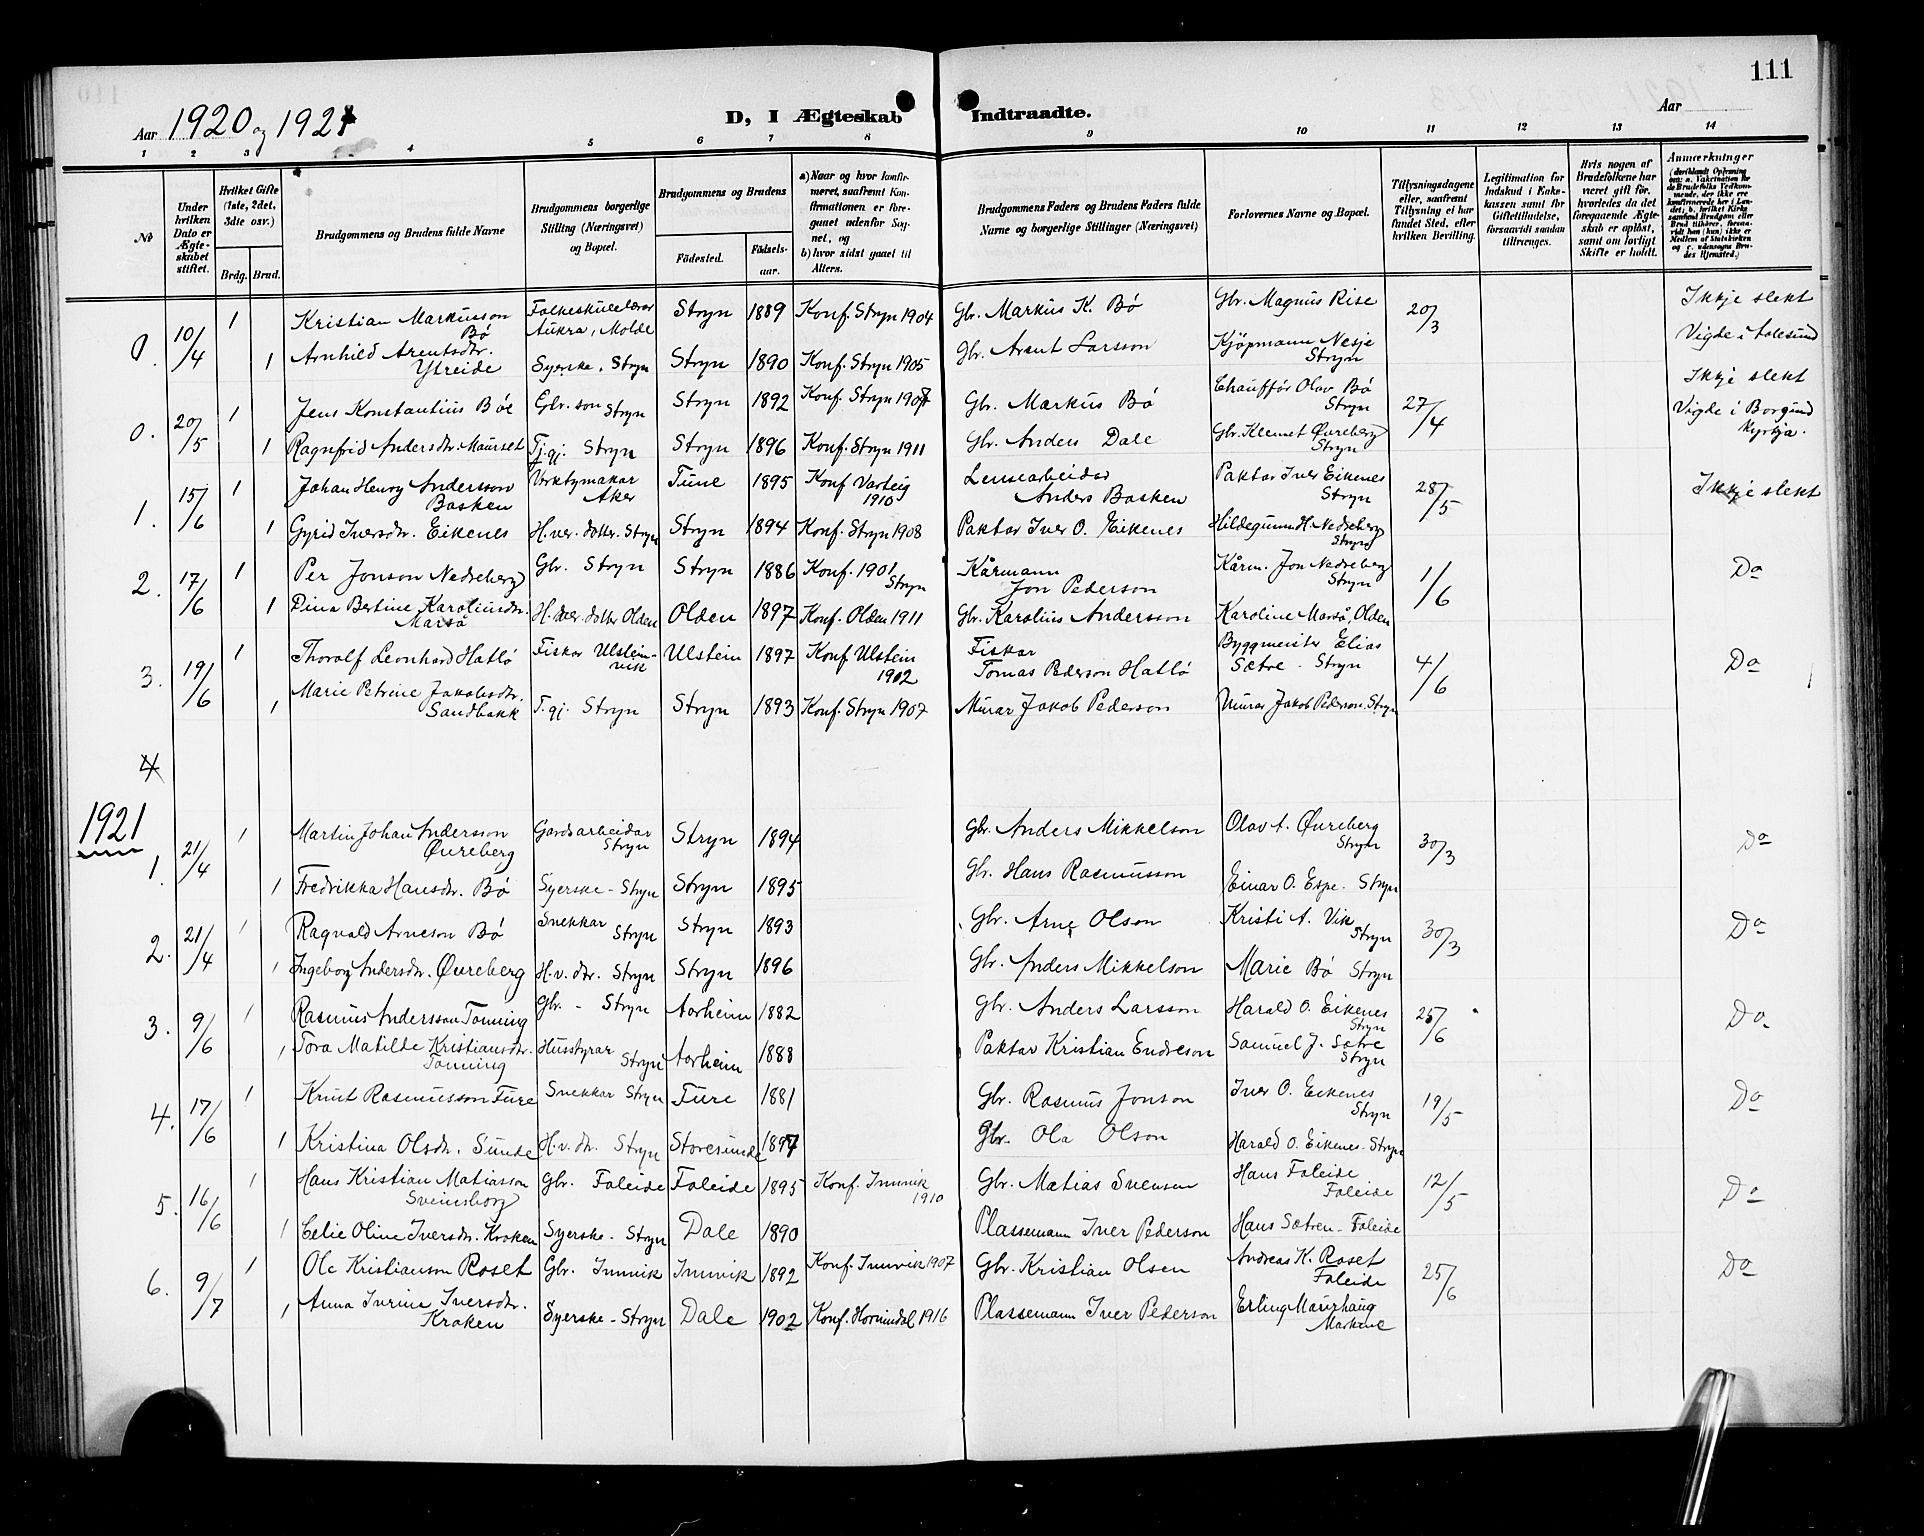 111
Aar 1920 og 1921
D, I Ægteskab Indtraadte.
Aar
1 2 3 4 5 6 7 8 9 10 11 12 13 14
№
Under hvilken Dato er Ægteskabet stiftet.
Hvilket Gifte (1ste, 2det, 3dte osv.)
Brdg. Brud.
Brudgommens og Brudens fulde Navne
Brudgommens borgerlige Stilling (Næringsvei) og Bopæl.
Brudgommens og Brudens
Födested.
Födsels-aar.
a) Naar og hvor konfirmeret, saafremt Konfirmationen er foregaaet udenfor Sognet, og
b) hvor sidst gaaet til Alters.
Brudgommens Faders og Brudens Faders fulde Navne og borgerlige Stillinger (Næringsvei)
Forlovernes Navne og Bopæl.
Tillysningsdagene eller, saafremt Tillysning ei har fundet Sted, efter hvilken Bevilling.
Legitimation for Indskud i Enkekassen samt for Giftetilladelse, forsaavidt saadan tiltrænges.
Hvis nogen af Brudefolkene har været gift før, hvorledes da det foregaaende Ægteskab er opløst, samt om lovligt Skifte er holdt.
Anmærkninger
0. 10/4 1 Kristian Markusson Bö Folkeskulelærar Aukra, Molde Stryn 1889 Konf. Stryn 1904 Gbr. Markus K. Bö Gbr. Magnus Rise 20/3 Ikkje slekt
1 Arnhild Arentsdtr. Ytreide Syerske, Stryn Stryn 1890 Konf. Stryn 1905 Gbr. Arent Larsson Kjöpmann Nesje Stryn Vigde i Aalesund
0. 20/5 1 Jens Konstantius Böe Gbr. son Stryn Stryn 1892 Konf. Stryn 1907 Gbr. Markus Bö Chaufför Olav Bö Stryn 27/4 Ikkje slekt
1 Ragnfrid Andersdtr. Maurset Tj.gj. Stryn Stryn 1896 Konf. Stryn 1911 Gbr. Anders Dale Gbr. Klemet Øvreberg Stryn Vigde i Borgund kyrkja.
1. 15/6 1 Johan Henry Andersson Basken Verktymakar Aker Tune 1895 Konf Varteig 1910 Anders Basken Paktar Iver Eikenes Stryn 28/5 Ikkje slekt
1 Gyrid Iversdtr. Eikenes H.ver. dotter. Stryn Stryn 1894 Konf. Stryn 1908 Paktar Iver O. Eikenes Hildegunn H. Nedreberg Stryn
2. 17/6 1 Per Jonson Nedreberg Gbr. Stryn Stryn 1886 Konf. 1901 Stryn Kårmann Jon Pederson Kårm. Jon Nedreberg Stryn 1/6 Do
1 Pina Bertine Karoliusdtr. Marså H.ver. dotter Olden Olden 1897 Konf. Olden 1911 Gbr. Karolius Andersson Karoline Marså, Olden
3. 19/6 1 Thoralf Leonhard Hatlö Fiskar Ulsteinvik Ulstein 1897 Konf Ulstein 1902 Fiskar Tomas Pederson Hatlö Byggmeister Elias Sætre. Stryn 4/6 Do
1 Marie Petrine Jakobsdtr. Sandbakk T.gj. Stryn Stryn 1893 Konf. Stryn 1907 Murar Jakob Pederson Murar Jakob Pederson. Stryn
4
1921
1. 21/4 1 Martin Johan Andersson Øvreberg Gardsarbeidar Stryn Stryn 1894 Gbr. Anders Mikkelson Olav A. Øvreberg Stryn 30/3 Do
1 Fredrikka Hansdtr. Bö Syerske - Stryn Stryn 1895 Gbr. Hans Rasmusson Einar O. Espe. Stryn
2. 21/4 1 Ragnvald Arneson Bö Snekkar Stryn Stryn 1893 Gbr. Arne Olson Kristi A. Vik Stryn 30/3 Do
1 Ingeborg Andersdtr. Øvreberg H.v. dtr. Stryn Stryn 1896 Gbr. Anders Mikkelson Marie Bö Stryn
3. 9/6 1 Rasmus Andersson Tonning Gbr. - Stryn Aarheim 1882 Gbr. Anders Larsson Harald O. Eikenes Stryn 25/6 Do.
1 Tora Matilde Kristiansdtr. Tonning Husstyrar Stryn Aarheim 1888 Paktar Kristian Endreson Samuel J. Sætre Stryn
4. 17/6 1 Knut Rasmusson Fure Snekkar Stryn Fure 1881 Gbr. Rasmus Jonson Iver O. Eikenes Stryn 19/5 Do
1 Kristina Olsdtr. Sunde H.v. dtr. Stryn Storesunde 1897 Gbr. Ola Olson Harald O. Eikenes. Stryn
5. 16/6 1 Hans Kristian Matiasson Sveinsborg Gbr. Faleide Faleide 1895 Konf. Innvik 1910 Gbr. Matias Svensen Hans Faleide Faleide 12/5 Do
1 Celie Oline Iversdtr. Kroken Syerske - Stryn Dale 1890 Plassemann Iver Pederson Hans Sætren - Faleide
6. 9/7 1 Ole Kristianson Roset Gbr. Innvik Innvik 1892 Konf. Innvik 1907 Gbr. Kristian Olsen Andreas K. Roset Faleide 25/6 Do
1 Anna Ivrine Iversdtr. Kroken Syerske - Stryn Dale 1902 Konf. Hornindal 1916 Plassemann Iver Pederson Erling Maurhaug Markane